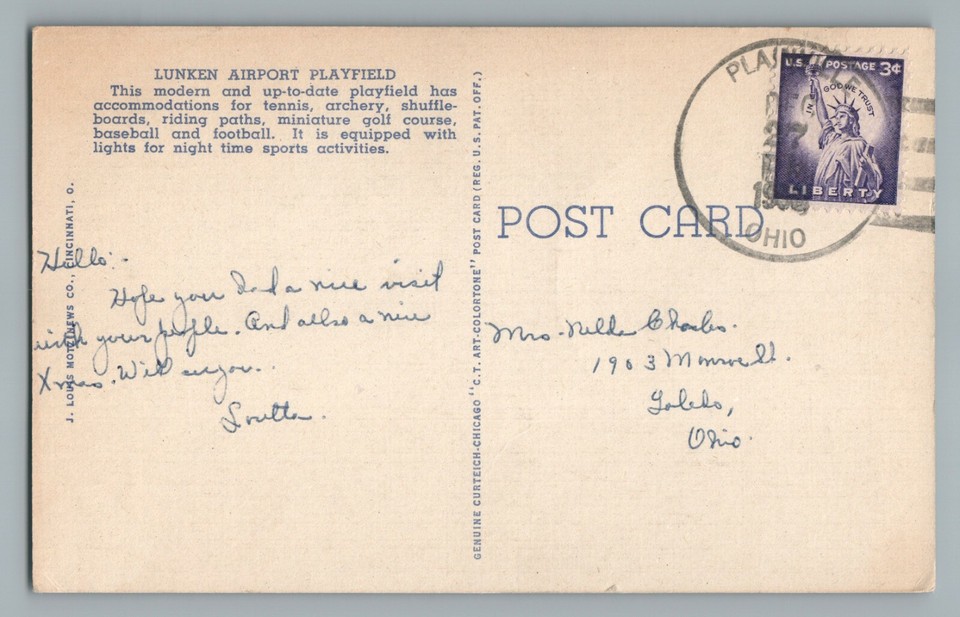 LUNKEN AIRPORT PLAYFIELD
This modern and up-to-date playfield has
accommodations for tennis, archery, shuffle-
boards, riding paths, miniature golf course,
baseball and football. It is equipped with
lights for night time sports activities.
J. LOUIS MOTZ NEWS CO., CINCINNATI, O.
Hello:
Hope you had a nice visit
with your people. And allso a nice
Xmas. Will see you.
Loretta.
GENUINE CURTEICH-CHICAGO "C.T. ART-COLORTONE" POST CARD (REG. U.S. PAT. OFF.)
POST CARD
OHIO
U.S. POSTAGE 3¢
IN GOD WE TRUST
LIBERTY
Mrs. Nelda Charles.
1903 Monroe St.
Toledo,
Ohio.